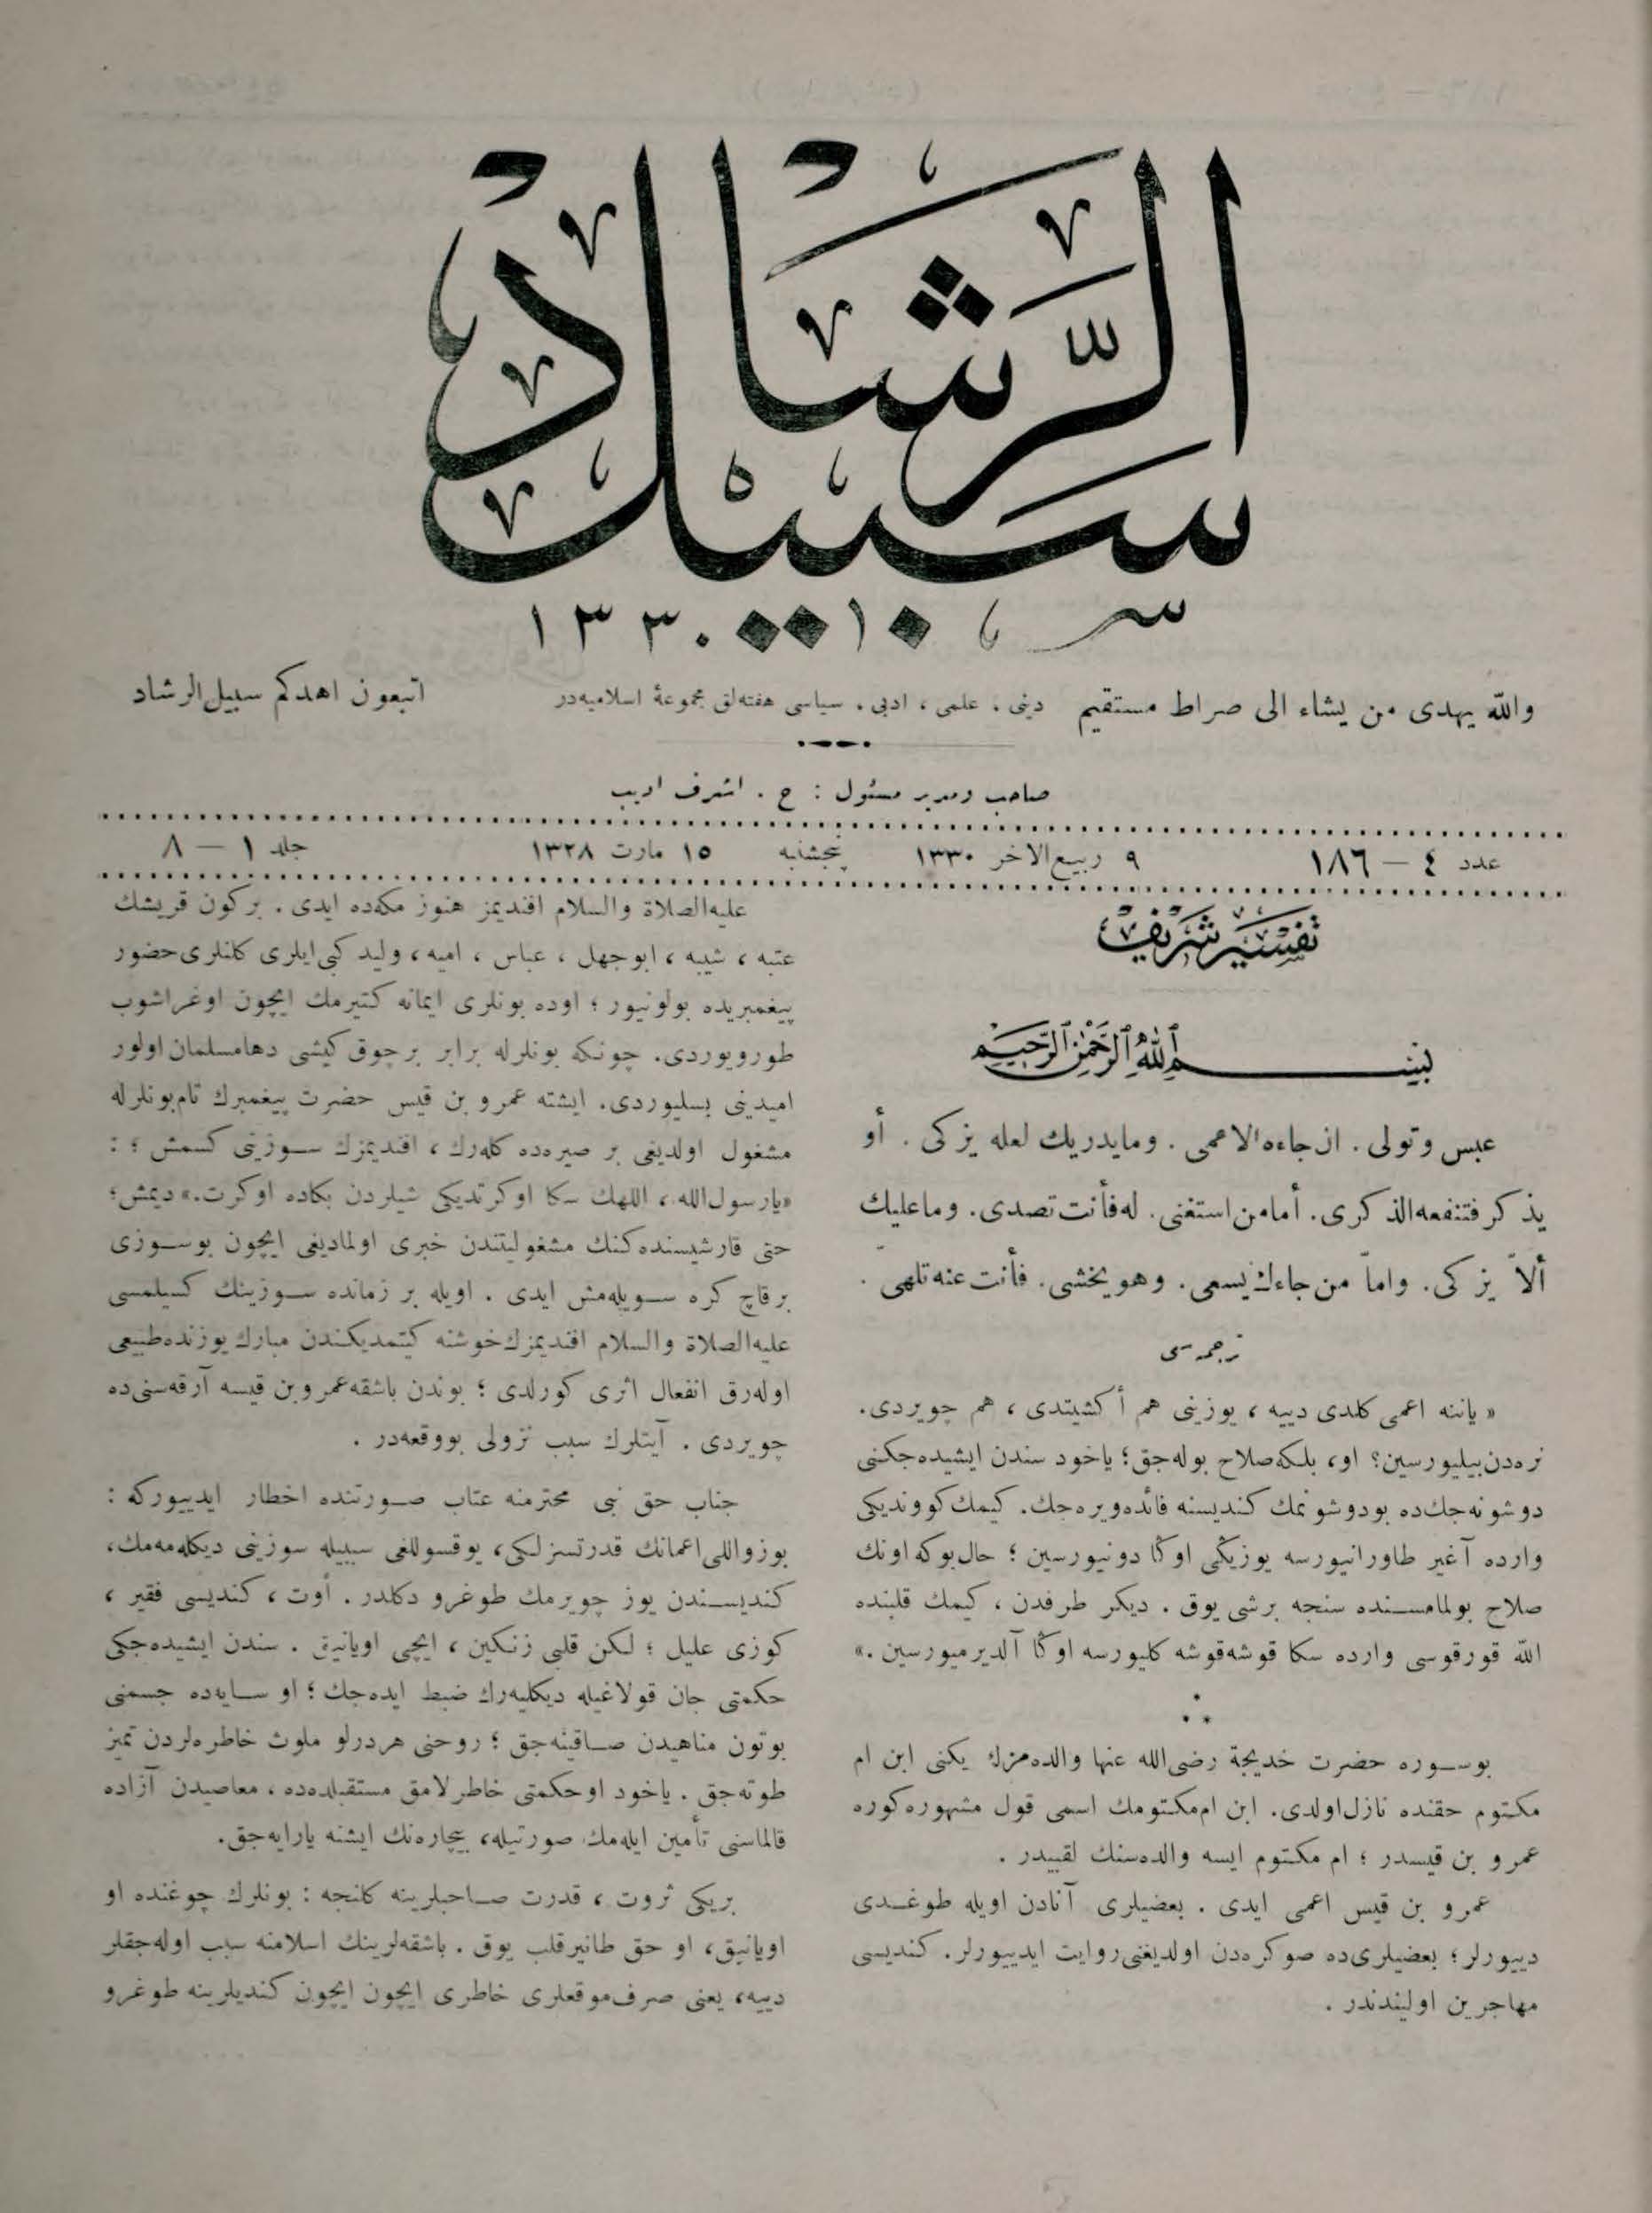 سبيل الرشاد
سنه ١ ١٣٣٠
والله يهدى من يشاء الى صراط مستقيم
دينى، علمى، ادبى، سياسى هفته‌لق مجموعهٔ اسلاميه‌در
اتبعون اهدكم سبيل الرشاد
صاحب ومدير مسئول : ح . اشرف اديب
عدد ٤ — ١٨٦
٩ ربيع الاخر ١٣٣٠
پنجشنبه
١٥ مارت ١٣٢٨
جلد ١ — ٨
تفسير شريف
بسم الله الرحمن الرحيم
عبس وتولى . ان جاءه الاعمى . ومايدريك لعله يزكى . أو
يذكر فتنفعه الذكرى. أمامن استغنى. له‌فأنت تصدى. وماعليك
ألاّ يزكى. واماّ من جاءك يسعى. وهو يخشى. فأنت عنه تلهى .
ترجمه‌سى
« ياننه اعمى كلدى دييه ، يوزينى هم أكشيتدى ، هم چويردى.
نره‌دن بيليورسين؟ او، بلكه صلاح بوله‌جق؛ ياخود سندن ايشيده‌جكنى
دوشونه‌جك‌ده بودوشونمك كنديسنه فائده‌ويره‌جك. كيمك كووندیكى
وارده آغير طاورانيورسه يوزيڭى اوكا دونيورسين ؛ حال‌بوكه اونك
صلاح بولمامسنده سنجه برشى يوق . ديكر طرفدن ، كيمك قلبنده
الله قورقوسى وارده سكا قوشه‌قوشه كليورسه اوكا آلديرميورسين .»
* * *
بوسوره حضرت خديجة رضى‌الله عنها والده‌مزك يكنى ابن ام
مكتوم حقنده نازل‌اولدى. ابن ام‌مكتومك اسمى قول مشهوره‌كوره
عمرو بن قيسدر ؛ ام مكتوم ايسه والده‌سنك لقبيدر .
عمرو بن قيس اعمى ايدى . بعضيلرى آنادن اويله طوغدى
دييورلر؛ بعضيلرى‌ده صوكره‌دن اولديغنى روايت ايدييورلر. كنديسى
مهاجرين اوليندندر .
عليه‌الصلاة والسلام افنديمز هنوز مكه‌ده ايدى . بركون قريشك
عتبه ، شيبه ، ابوجهل ، عباس ، اميه ، وليد كبى‌ايلرى كلنلرى‌حضور
پيغمبريده بولونيور ؛ اوده بونلرى ايمانه كتيرمك ايچون اوغراشوب
طورويوردى. چونكه بونلرله برابر برچوق كيشى دهامسلمان‌اولور
اميدينى بسليوردى. ايشته عمرو بن قيس حضرت پيغمبرك تام‌بونلرله
مشغول اولديغى بر صيره‌ده كله‌رك ، افنديمزك سوزينى كسمش ؛ :
«يارسول‌الله ، اللهك سكا اوكرتديكى شيلردن بكاده اوكرت.» ديمش؛
حتى قارشيسنده‌كنك مشغوليتندن خبرى اولماديغى ايچون بوسوزى
برقاچ كره سويله‌مش ايدى . اويله بر زمانده سوزينك كسيلمسى
عليه‌الصلاة والسلام افنديمزك‌خوشنه كيتمديكندن مبارك يوزنده‌طبيعى
اوله‌رق انفعال اثرى كورلدى ؛ بوندن باشقه‌عمروبن قيسه آرقه‌سنى‌ده
چويردى . آيتلرك سبب نزولى بووقعه‌در .
جناب حق نبى محترمنه عتاب صورتنده اخطار ايدييوركه :
بوزواللى‌اعمانك قدرتسزلكى، يوقسوللغى سببيله سوزينى ديكله‌مه‌مك،
كنديسندن يوز چويرمك طوغرو دكلدر . أوت ، كنديسى فقير ،
كوزى عليل ؛ لكن قلبى زنكين ، ايچى اويانيق . سندن ايشيده‌جكى
حكمتى جان قولاغيله ديكليه‌رك ضبط ايده‌جك ؛ او سايه‌ده جسمنى
بوتون مناهيدن صاقينه‌جق ؛ روحنى هردرلو ملوث خاطره‌لردن تميز
طوته‌جق . ياخود اوحكمتى خاطرلامق مستقبله‌ده ، معاصيدن آزاده
قالماسنى تأمين ايله‌مك صورتيله، بيچاره‌نك ايشنه يارايه‌جق.
بريكى ثروت ، قدرت صاحبلرينه كلنجه : بونلرك چوغنده او
اويانيق، او حق طانيرقلب يوق . باشقه‌لرينك اسلامنه سبب اوله‌جقلر
دييه، يعنى صرف‌موقعلرى خاطرى ايچون ايچون كنديلرينه طوغرو